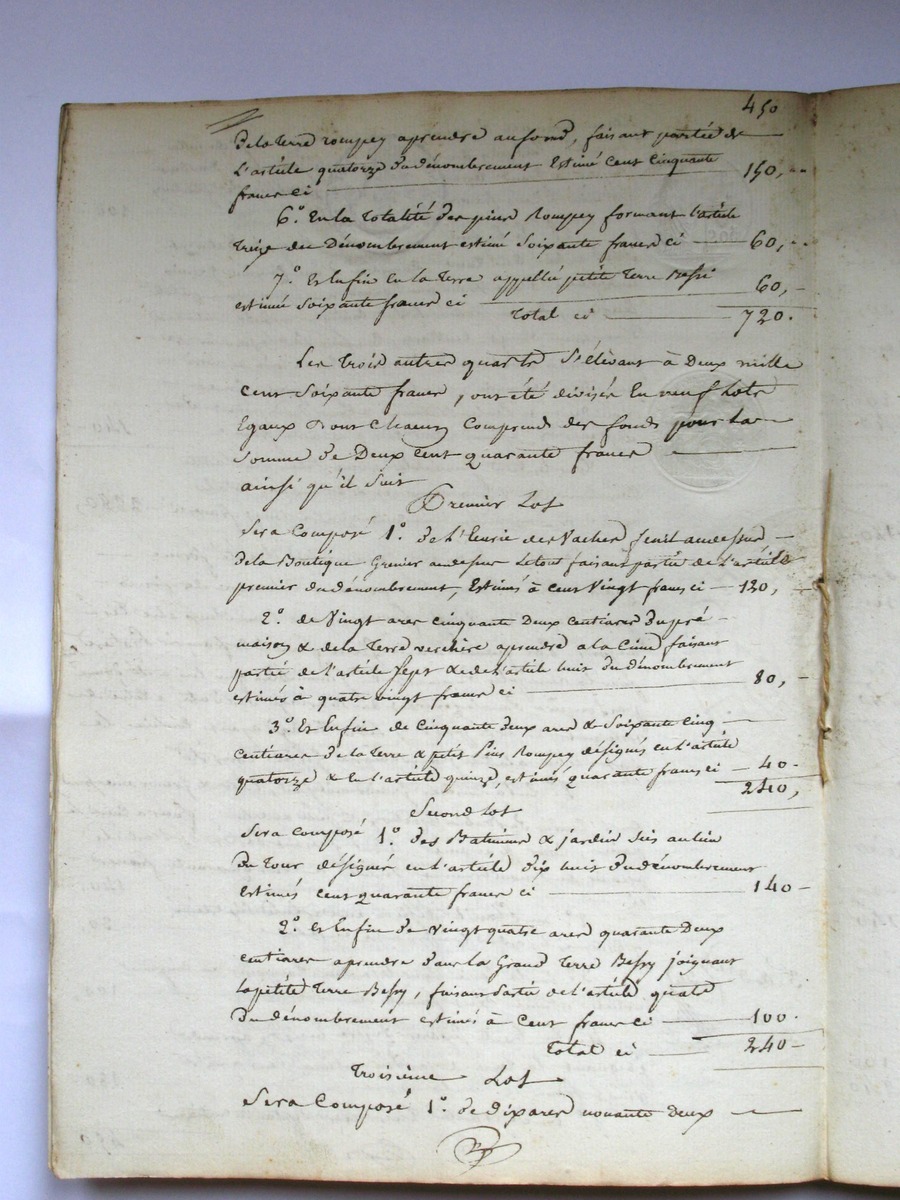 450
De la Terre rompey aprendre au fond, faisant partie de
L'article quatorze du dénombrement Estimé Cent Cinquante
francs ci 150,
6.° En la Totalité des pins Rompey formant l'article
Treize du Dénombrement estimé Soixante francs ci 60,
7.° Et Enfin en la Terre appellée petite Terre Bessi
estimée Soixante francs ci 60,
Total ci 720.
Les Trois autres quarts S'élevant à Deux mille
Cent Soixante francs, ont été divisés En neuf Lots
Egaux Dont Chacun Comprend des fonds pour La
Somme de Deux Cent quarante francs
ainsi qu'il Suit
Premier Lot
Sera Composé 1.° de l'Ecurie des Vaches fenil au dessus
de la Boutique Grenier au dessus Le tout faisant partie de L'article
premier du dénombrement, Estimés à Cent Vingt francs ci 120,
2.° de Vingt ares cinquante Deux Centiares Du pré
maison & de la Terre verchère aprendre a la Cime faisant
partie de l'article Sept & de L'article huit du dénombrement
estimés à quatre vingt francs ci 80,
3.° Et Enfin de Cinquante deux ares & Soixante Cinq
Centiares De la Terre & petit Pins Rompey désignés en L'article
quatorze & en l'article quinze, estimés quarante francs ci 40
240,
Second Lot
Sera Composé 1.° des Batimens & jardin Sis au lieu
Du Tour désignés en l'article Dix huit du dénombrement
Estimés Cent quarante francs ci 140
2.° et Enfin de Vingt quatre ares quarante Deux
centiares aprendre dans la Grand Terre Bessy joignant
La petite Terre Bessy, faisant Partie de l'article quatre
Du dénombrement estimés à Cent francs ci 100.
Total ci 240
Troisième Lot
Sera Composé 1.° de dix ares nonante Deux